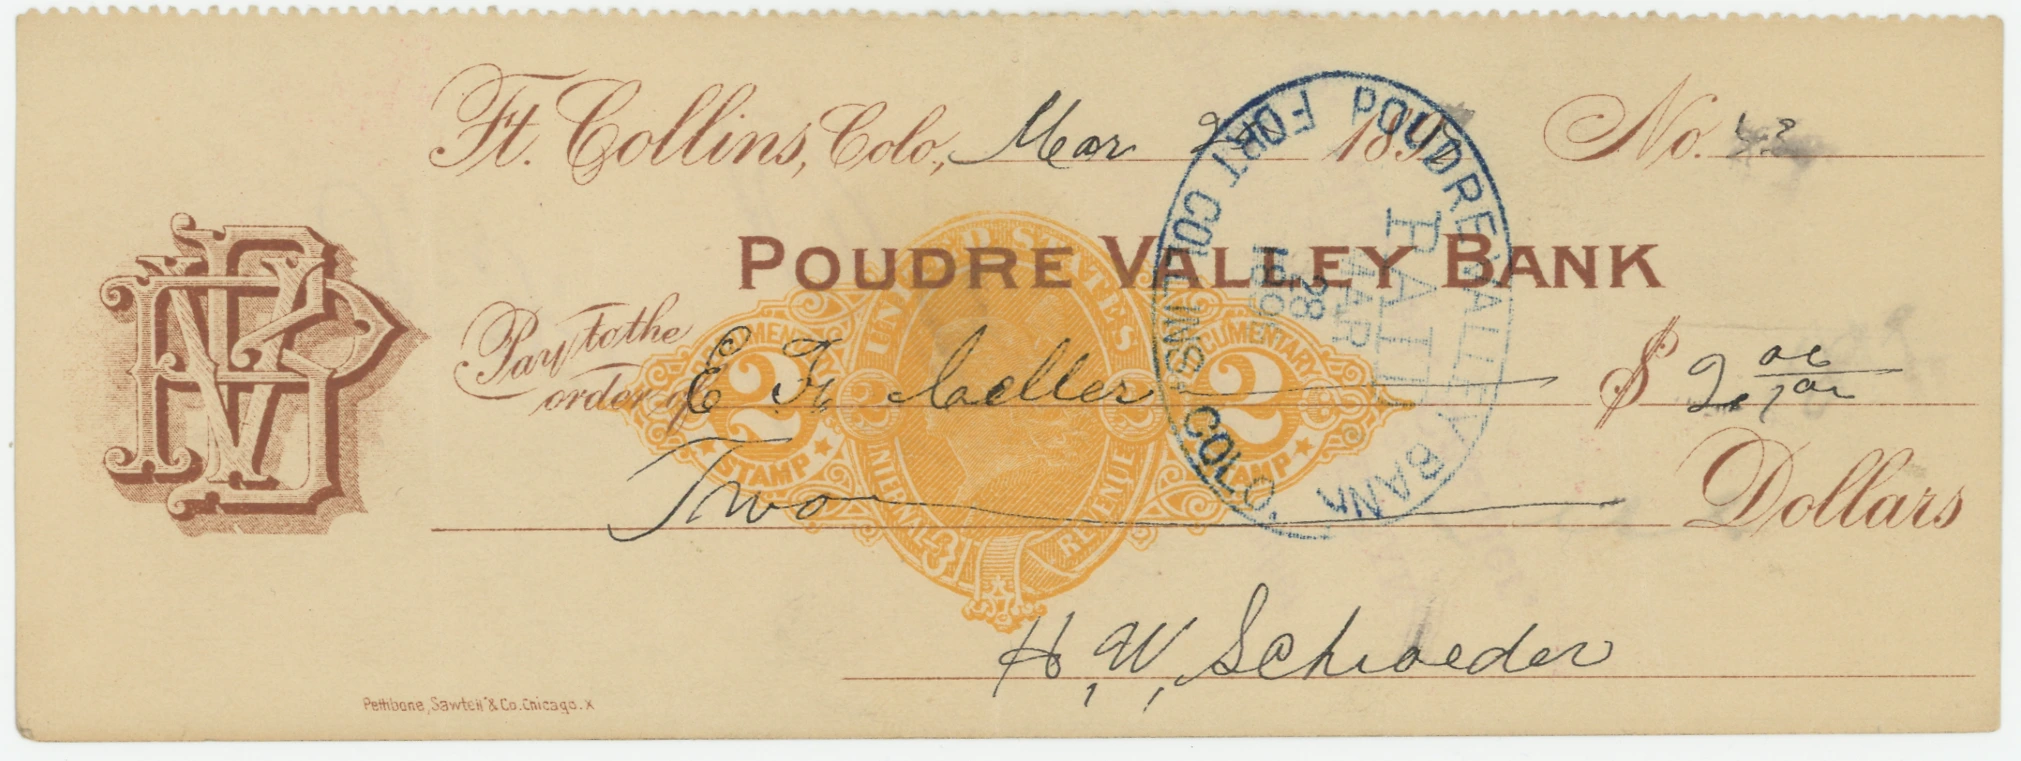 Ft. Collins, Colo., Mar 2 189 No. 43
POUDRE VALLEY BANK
Pay to the order of E F Celler $ 2.00/100
Two Dollars
H. W. Schroeder
PVB
UNITED STATES
INTERNAL REVENUE
DOCUMENTARY 2 STAMP
DOCUMENTARY 2 STAMP
2 2
POUDRE VALLEY BANK
PAID
MAR
28
FORT COLLINS, COLO.
Pettibone, Sawtell & Co. Chicago. X